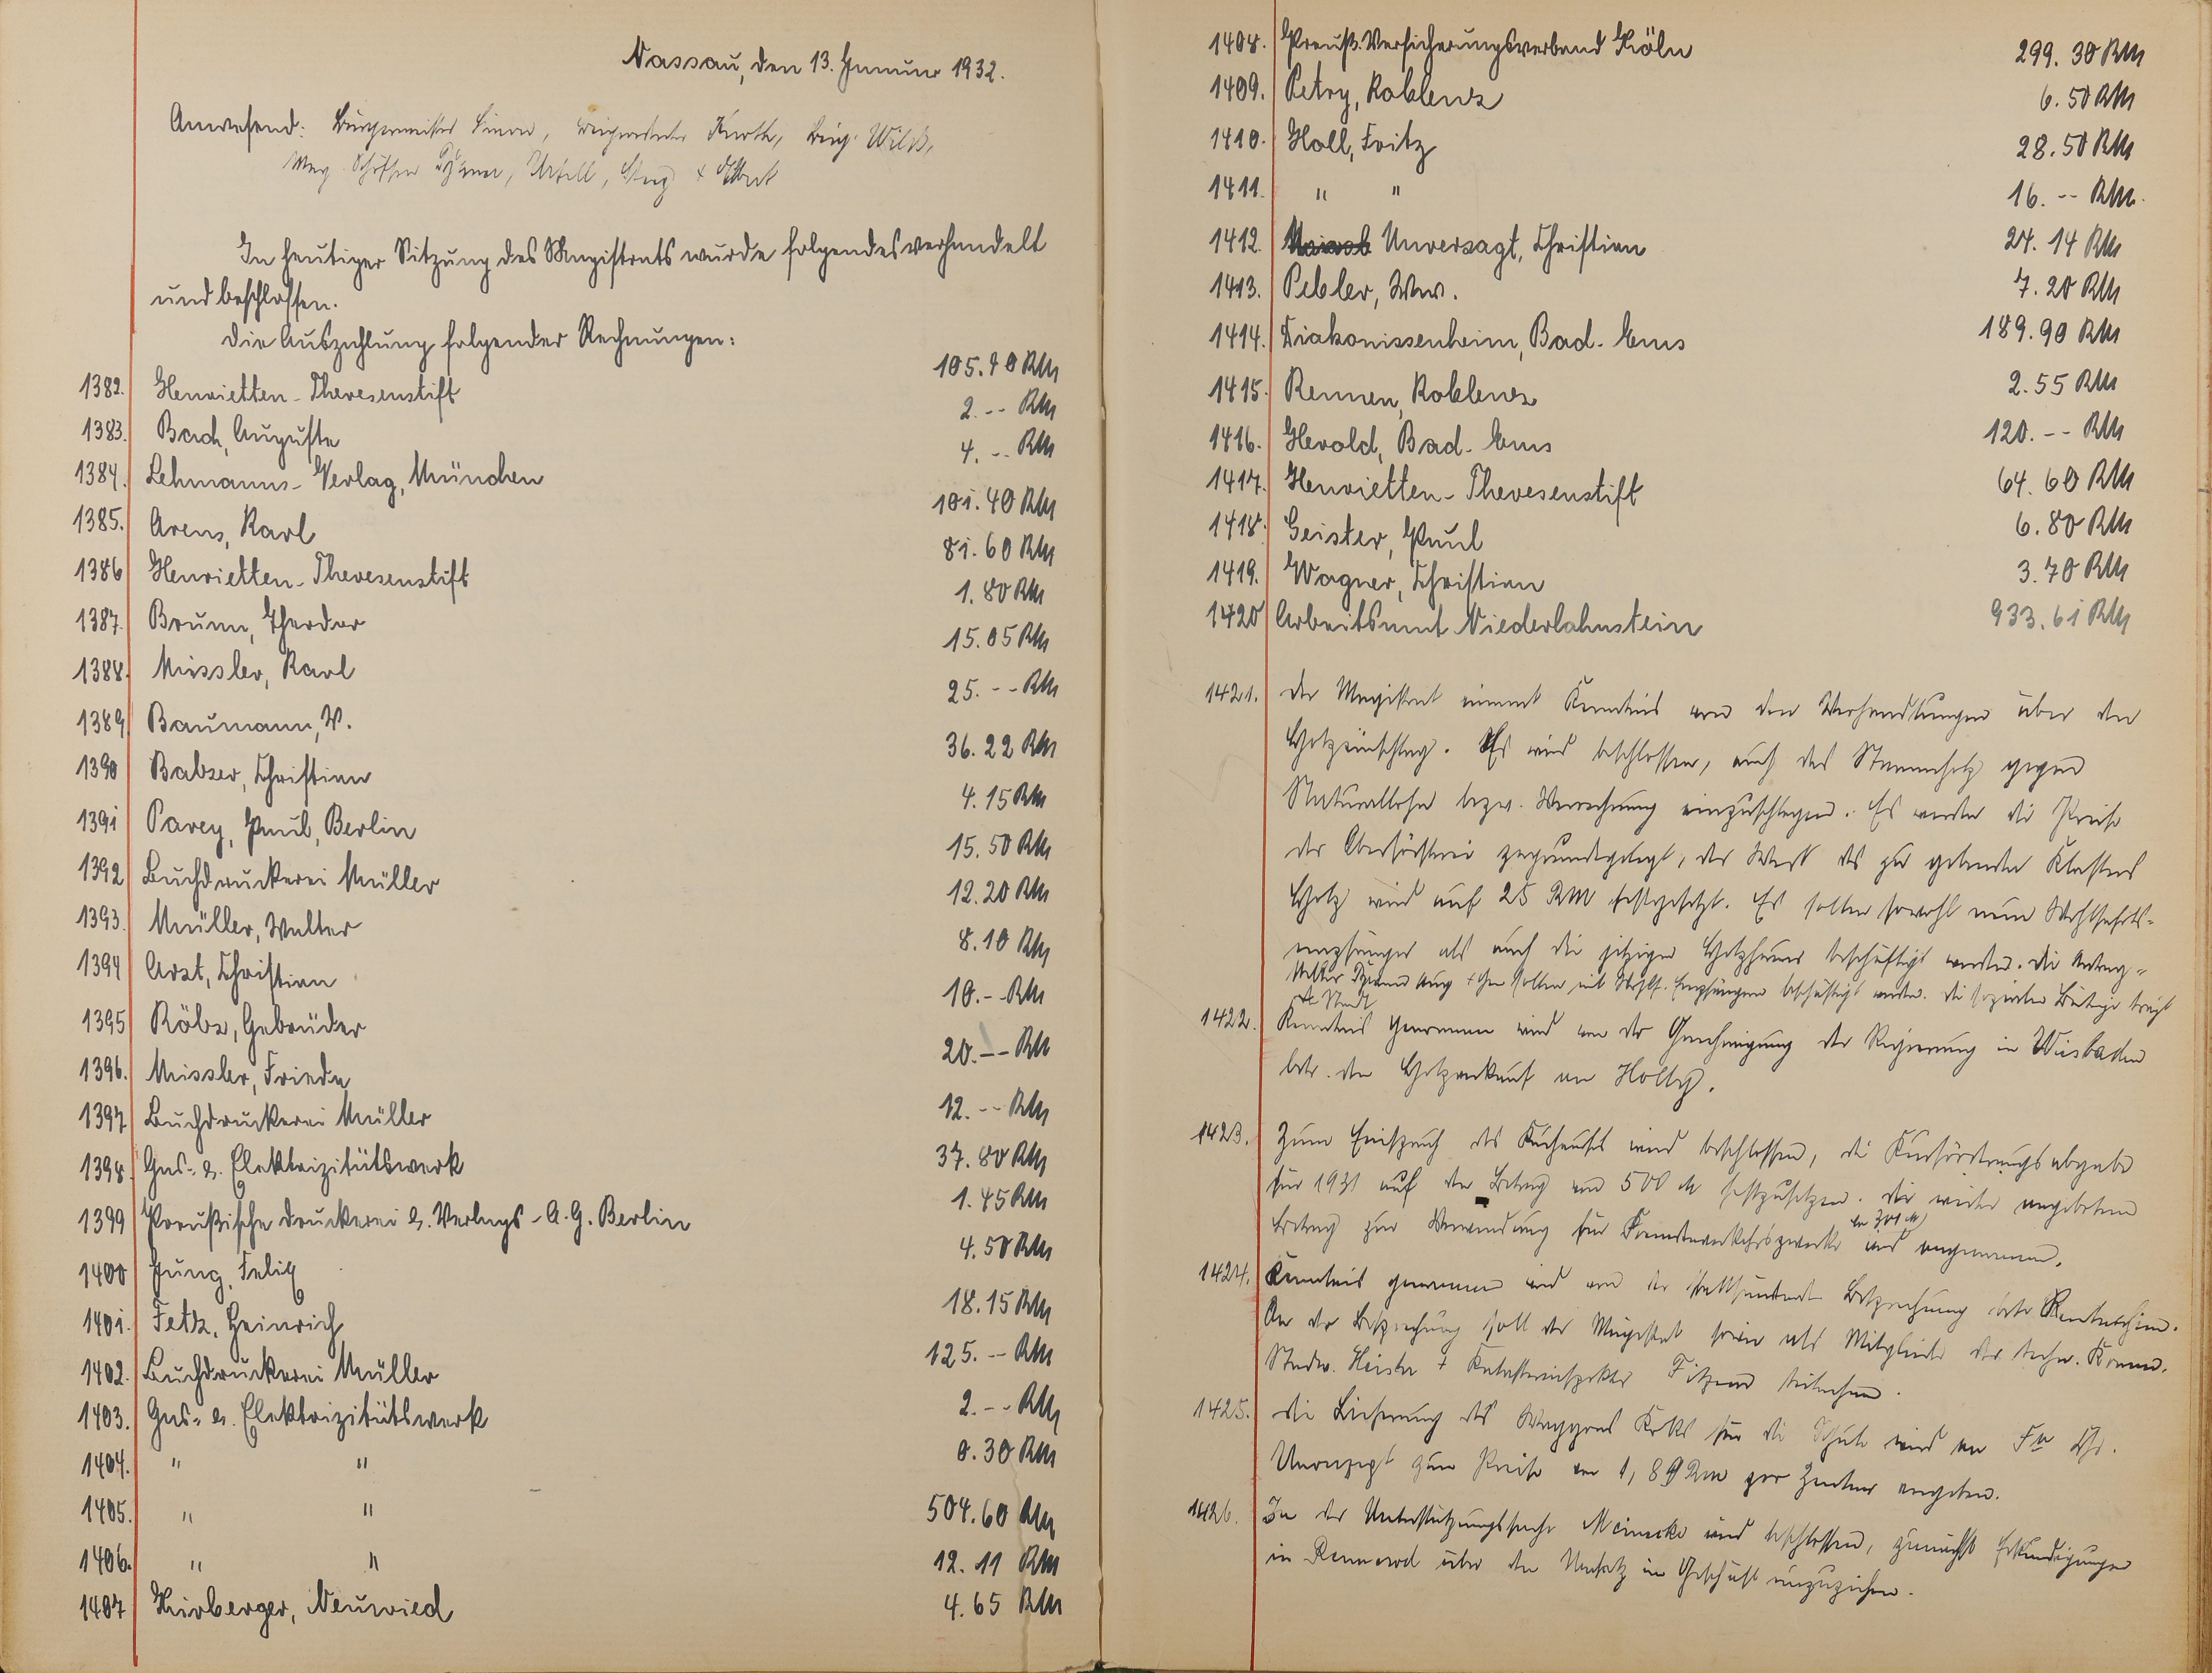 Nassau, den 13. Januar 1932.
Anwesend: Bürgermeister Simon, Beigeordneter Kurth, Beig. Wild,
Mag. Schöffen Urfell, Stug +
In heutiger Sitzung des Magistrats wurde folgendes verhandelt
und beschlossen.
Die Auszahlung folgender Rechnungen:
1382. Henrietten-Theresenstift 105.70 RM
1383. Bach, Auguste 2.-- RM
1384. Lehmanns-Verlag, München 4.-- RM
1385. Arens, Karl 101.40 RM
1386 Henrietten-Theresenstift 81.60 RM
1387. Brunn, Theodor 1.80 RM
1388. Missler, Karl 15.05 RM
1389 Baumann, W. 25.-- RM
1390 Balzer, Christian 36.22 RM
1391 Parey, Paul, Berlin 4.15 RM
1392 Buchdruckerei Müller 15.50 RM
1393. Müller, Walter 12.20 RM
1394 Arzt, Christian 8.10 RM
1395 Rölz, Gebrüder 10.-- RM
1396. Missler, Frieda 20.-- RM
1397 Buchdruckerei Müller 12.-- RM
1398. Gas- u. Elektrizitätswerk 37.80 RM
1399 Preußische Druckerei u. Verlags-A.G. Berlin 1.45 RM
1400 Jung, Felix 4.50 RM
1401. Fetz, Heinrich 18.15 RM
1402. Buchdruckerei Müller 125.-- RM
1403. Gas- u. Elektrizitätswerk 2.-- RM
1404. " " 0.30 RM
1405. " " 504.60 RM
1406. " " 12.11 RM
1407 Hirberger, Neuwied 4.65 RM
1408. Preuß. Versicherungsverband Köln 299.30 RM
1409. Petry, Koblenz 6.50 RM
1410. Holl, Fritz 28.50 RM
1411. " " 16.-- RM.
1412. Unversagt, Christian 24.14 RM
1413. Pebler, Ww. 7.20 RM
1414. Diakonissenheim, Bad-Ems 189.90 RM
1415. Rennen, Koblenz 2.55 RM
1416. Herold, Bad-Ems 120.-- RM
1417. Henrietten-Theresenstift 64.60 RM
1418. Geister, Paul 6.80 RM
1419. Wagner, Christian 3.70 RM
1420 Arbeitsamt Niederlahnstein 933.61 RM
1421. Der Magistrat nimmt Kenntnis von den Verhandlungen über den
Holzeinschlag. Es wird beschlossen, auch das Stammholz gegen
Naturallohn bezw. Verrechnung einzuschlagen. Es werden die Preise
der Oberförsterei zugrundegelegt, der Wert des zu gebenden Klafters
Holz wird auf 25 RM festgesetzt. Es sollen sowohl neun Wohlfahrts-
empfänger als auch die jetzigen Holzhauer beschäftigt werden. Die Antrag-
steller Aug + sollen mit Wohlf. Empfängern beschäftigt werden. Die sozialen Beiträge trägt
die Stadt
1422. Kenntnis genommen wird von der Genehmigung der Regierung in Wiesbaden
betr. den Holzverkauf an Holly.
1423. Zum Einspruch des Kurhauses wird beschlossen, die Kurförderungsabgabe
für 1931 auf den Betrag von 500 M festzusetzen. Der weiter angebotene
Betrag zur Verwendung für Fremdenverkehrszwecke von 300 M wird angenommen.
1424. Kenntnis genommen wird von der stattfindenden Besprechung betr.
An der Besprechung soll der Magistrat sowie als Mitglieder der techn. Komm.
Stadtv. Heister + Katasterinspektor Fitzend teilnehmen.
1425. Die Lieferung des Waggons Koks für die Schule wird an Fa Chr.
Unverzagt zum Preise von 1,89 RM pro Zentner vergeben.
1426. In der Unterstützungssache Meinecke wird beschlossen, zunächst Erkundigungen
in Rennerod über den Umsatz im Geschäft einzuziehen.